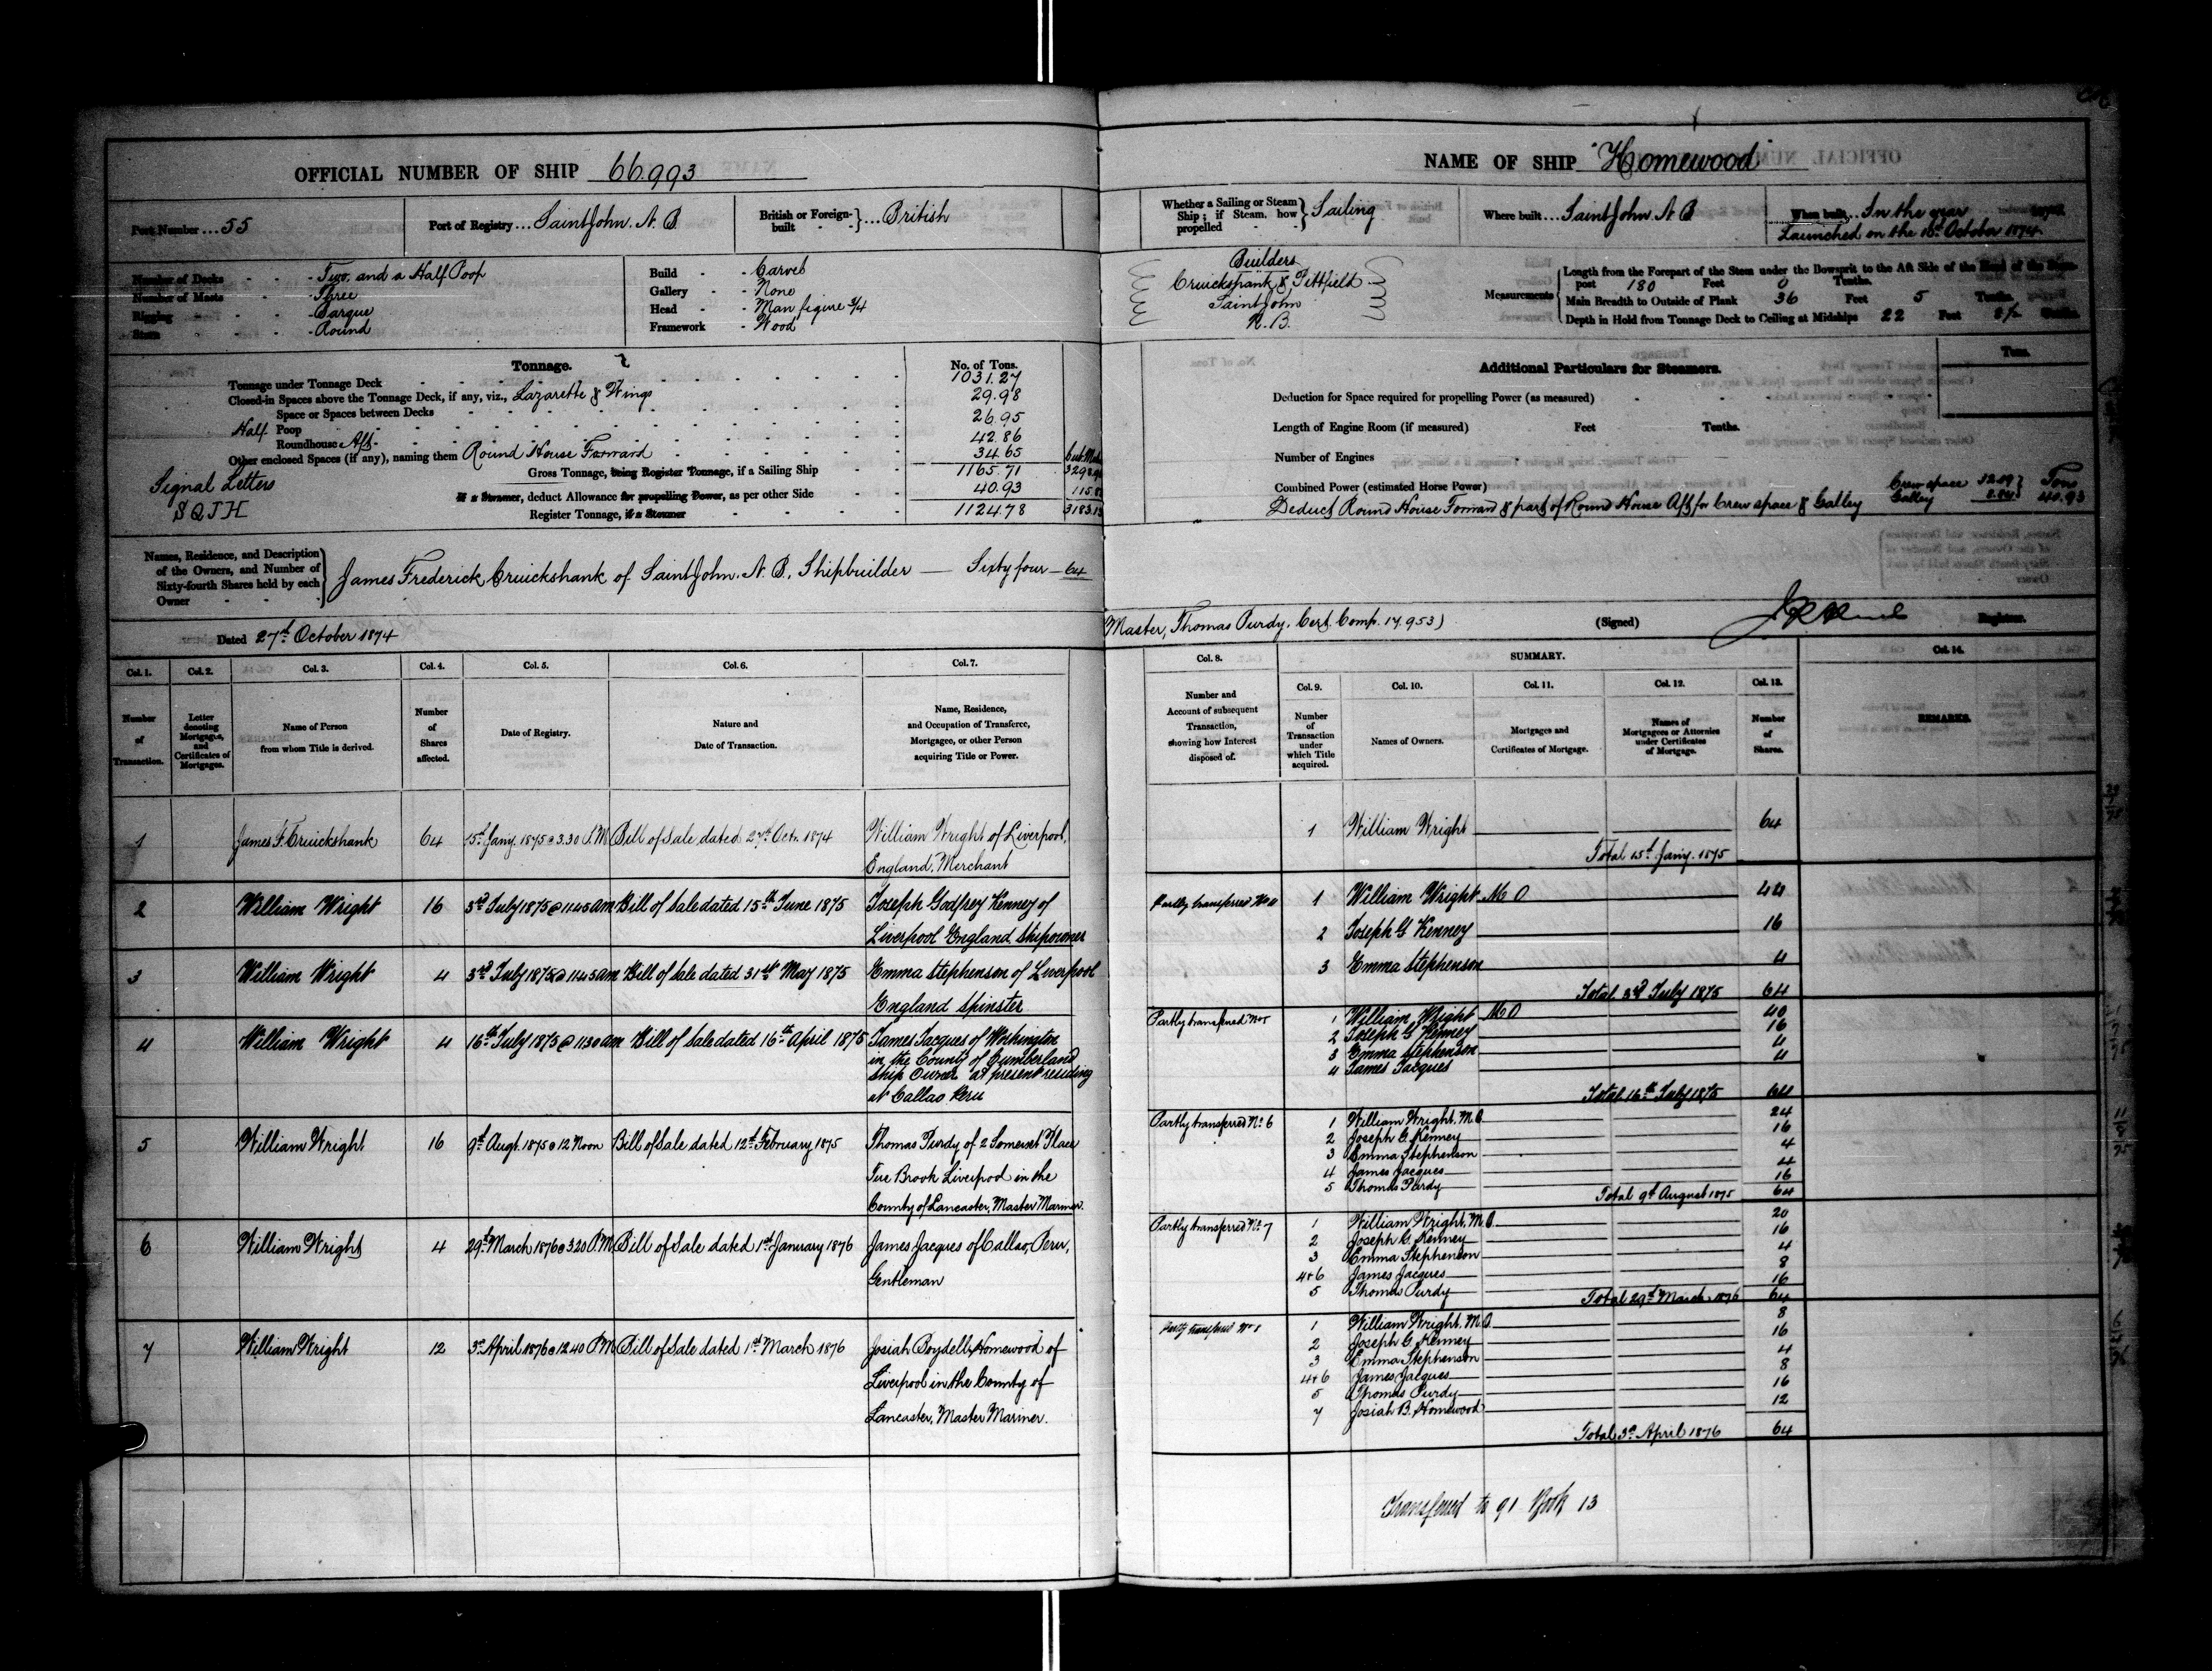 OFFICIAL NUMBER OF SHIP 66.993
Port Number ... 55
Port of Registry ... Saint John. N. B
British or Foreign-built - - } ... British
Number of Decks - - - Two, and a Half Poop
Number of Masts - - - Three
Rigging - - - Barque
Stern - - - Round
Build - - Carvel
Gallery - - None
Head - - Man figure 3/4
Framework - Wood
Tonnage.
No. of Tons.
Tonnage under Tonnage Deck 1031.27
Closed-in Spaces above the Tonnage Deck, if any, viz., Lazarette & Wings 29.98
Space or Spaces between Decks 26.95
Half Poop
Roundhouse Aft 42.86
Other enclosed Spaces (if any), naming them Round House Forward 34.65
Gross Tonnage, being Register Tonnage, if a Sailing Ship 1165.71
If a Steamer, deduct Allowance for propelling Power, as per other Side 40.93
Register Tonnage, if a Steamer 1124.78
Signal Letters
Names, Residence, and Description of the Owners, and Number of Sixty-fourth Shares held by each Owner - -
James Frederick Cruickshank of Saint John. N. B., Shipbuilder — Sixty four — 64
Dated 27th October 1874
Col. 1. Col. 2. Col. 3. Col. 4. Col. 5. Col. 6. Col. 7.
Number of Transaction.
Letter denoting Mortgages, and Certificates of Mortgages.
Name of Person from whom Title is derived.
Number of Shares affected.
Date of Registry.
Nature and Date of Transaction.
Name, Residence, and Occupation of Transferee, Mortgagee, or other Person acquiring Title or Power.
1 James F. Cruickshank 64 15th Jany. 1875 @ 3.30 P.M Bill of Sale dated 27th Oct. 1874 William Wright of Liverpool,
England, Merchant
2 William Wright 16 3rd July 1875 @ 11.45 am Bill of Sale dated 15th June 1875 Joseph Godfrey Kenney of
Liverpool England Shipowner
3 William Wright 4 3rd July 1875 @ 11.45 am Bill of Sale dated 31st May 1875 Emma Stephenson of Liverpool
England Spinster
4 William Wright 4 16th July 1875 @ 11.30 am Bill of Sale dated 16th April 1875 James Jacques of Workington
in the County of Cumberland
Ship Owner at present residing
at Callao Peru
5 William Wright 16 9th Augt. 1875 @ 12 Noon Bill of Sale dated 12th February 1875 Thomas Purdy of 2 Somerset Place
Tue Brook Liverpool in the
County of Lancaster, Master Mariner.
6 William Wright 4 29th March 1876 @ 3.20 P.M. Bill of Sale dated 1st January 1876 James Jacques of Callao, Peru,
Gentleman
7 William Wright 12 3rd April 1876 @ 12.40 P.M Bill of Sale dated 1st March 1876 Josiah Boydell Homewood of
Liverpool in the County of
Lancaster, Master Mariner.
NAME OF SHIP "Homewood"
Whether a Sailing or Steam Ship; if Steam, how propelled - - } Sailing
Where built ... Saint John N B
When built ... In the year
Launched on the October 1874
Builders
Cruickshank & Pittfield
Saint John
N. B.
Measurements
Length from the Forepart of the Stem under the Bowsprit to the Aft Side of the Head of the Stern-
post 180 Feet 0 Tenths.
Main Breadth to Outside of Plank 36 Feet 5 Tenths.
Depth in Hold from Tonnage Deck to Ceiling at Midships 22 Feet
Additional Particulars for Steamers.
Tons.
Deduction for Space required for propelling Power (as measured)
Length of Engine Room (if measured) Feet Tenths.
Number of Engines
Combined Power (estimated Horse Power)
Deduct Round House Forward & part of Round House Aft for Crew space & Galley
Crew space
Galley
Tons
40.93
Master, Thomas Purdy. Cert. Comp. 17.953)
(Signed)
Registrar.
Col. 8. SUMMARY. Col. 14.
Col. 9. Col. 10. Col. 11. Col. 12. Col. 13.
Number and Account of subsequent Transaction, showing how Interest disposed of.
Number of Transaction under which Title acquired.
Names of Owners.
Mortgages and Certificates of Mortgage.
Names of Mortgagees or Attornies under Certificates of Mortgage.
Number of Shares.
REMARKS.
1 William Wright 64
Total 15th Jany. 1875
Partly transferred 1 William Wright M O 44
2 Joseph G Kenney 16
3 Emma Stephenson 4
Total 3rd July 1875 64
Partly transferred No 5 1 William Wright M O 40
2 Joseph G Kenney 16
3 Emma Stephenson 4
4 James Jacques 4
Total 16th July 1875 64
Partly transferred No. 6 1 William Wright. M.O. 24
2 Joseph G. Kenney 16
3 Emma Stephenson 4
4 James Jacques 4
5 Thomas Purdy 16
Total 9th August 1875 64
Partly transferred No. 7 1 William Wright, M.O. 20
2 Joseph G. Kenney 16
3 Emma Stephenson 4
4+6 James Jacques 8
5 Thomas Purdy 16
Total 29th March 1876 64
Partly transferred No 8 1 William Wright, M.O. 8
2 Joseph G. Kenney 16
3 Emma Stephenson 4
4+6 James Jacques 8
5 Thomas Purdy 16
7 Josiah B. Homewood 12
Total 3rd April 1876 64
Transferred to 91 Book 13